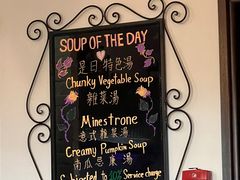 SOUP OF THE DAY
是日特色湯
Chunky Vegetable Soup
雜菜湯
Minestrone
意式雜菜湯
Creamy Pumpkin Soup
南瓜忌廉湯
Subjected to 10% Service charge